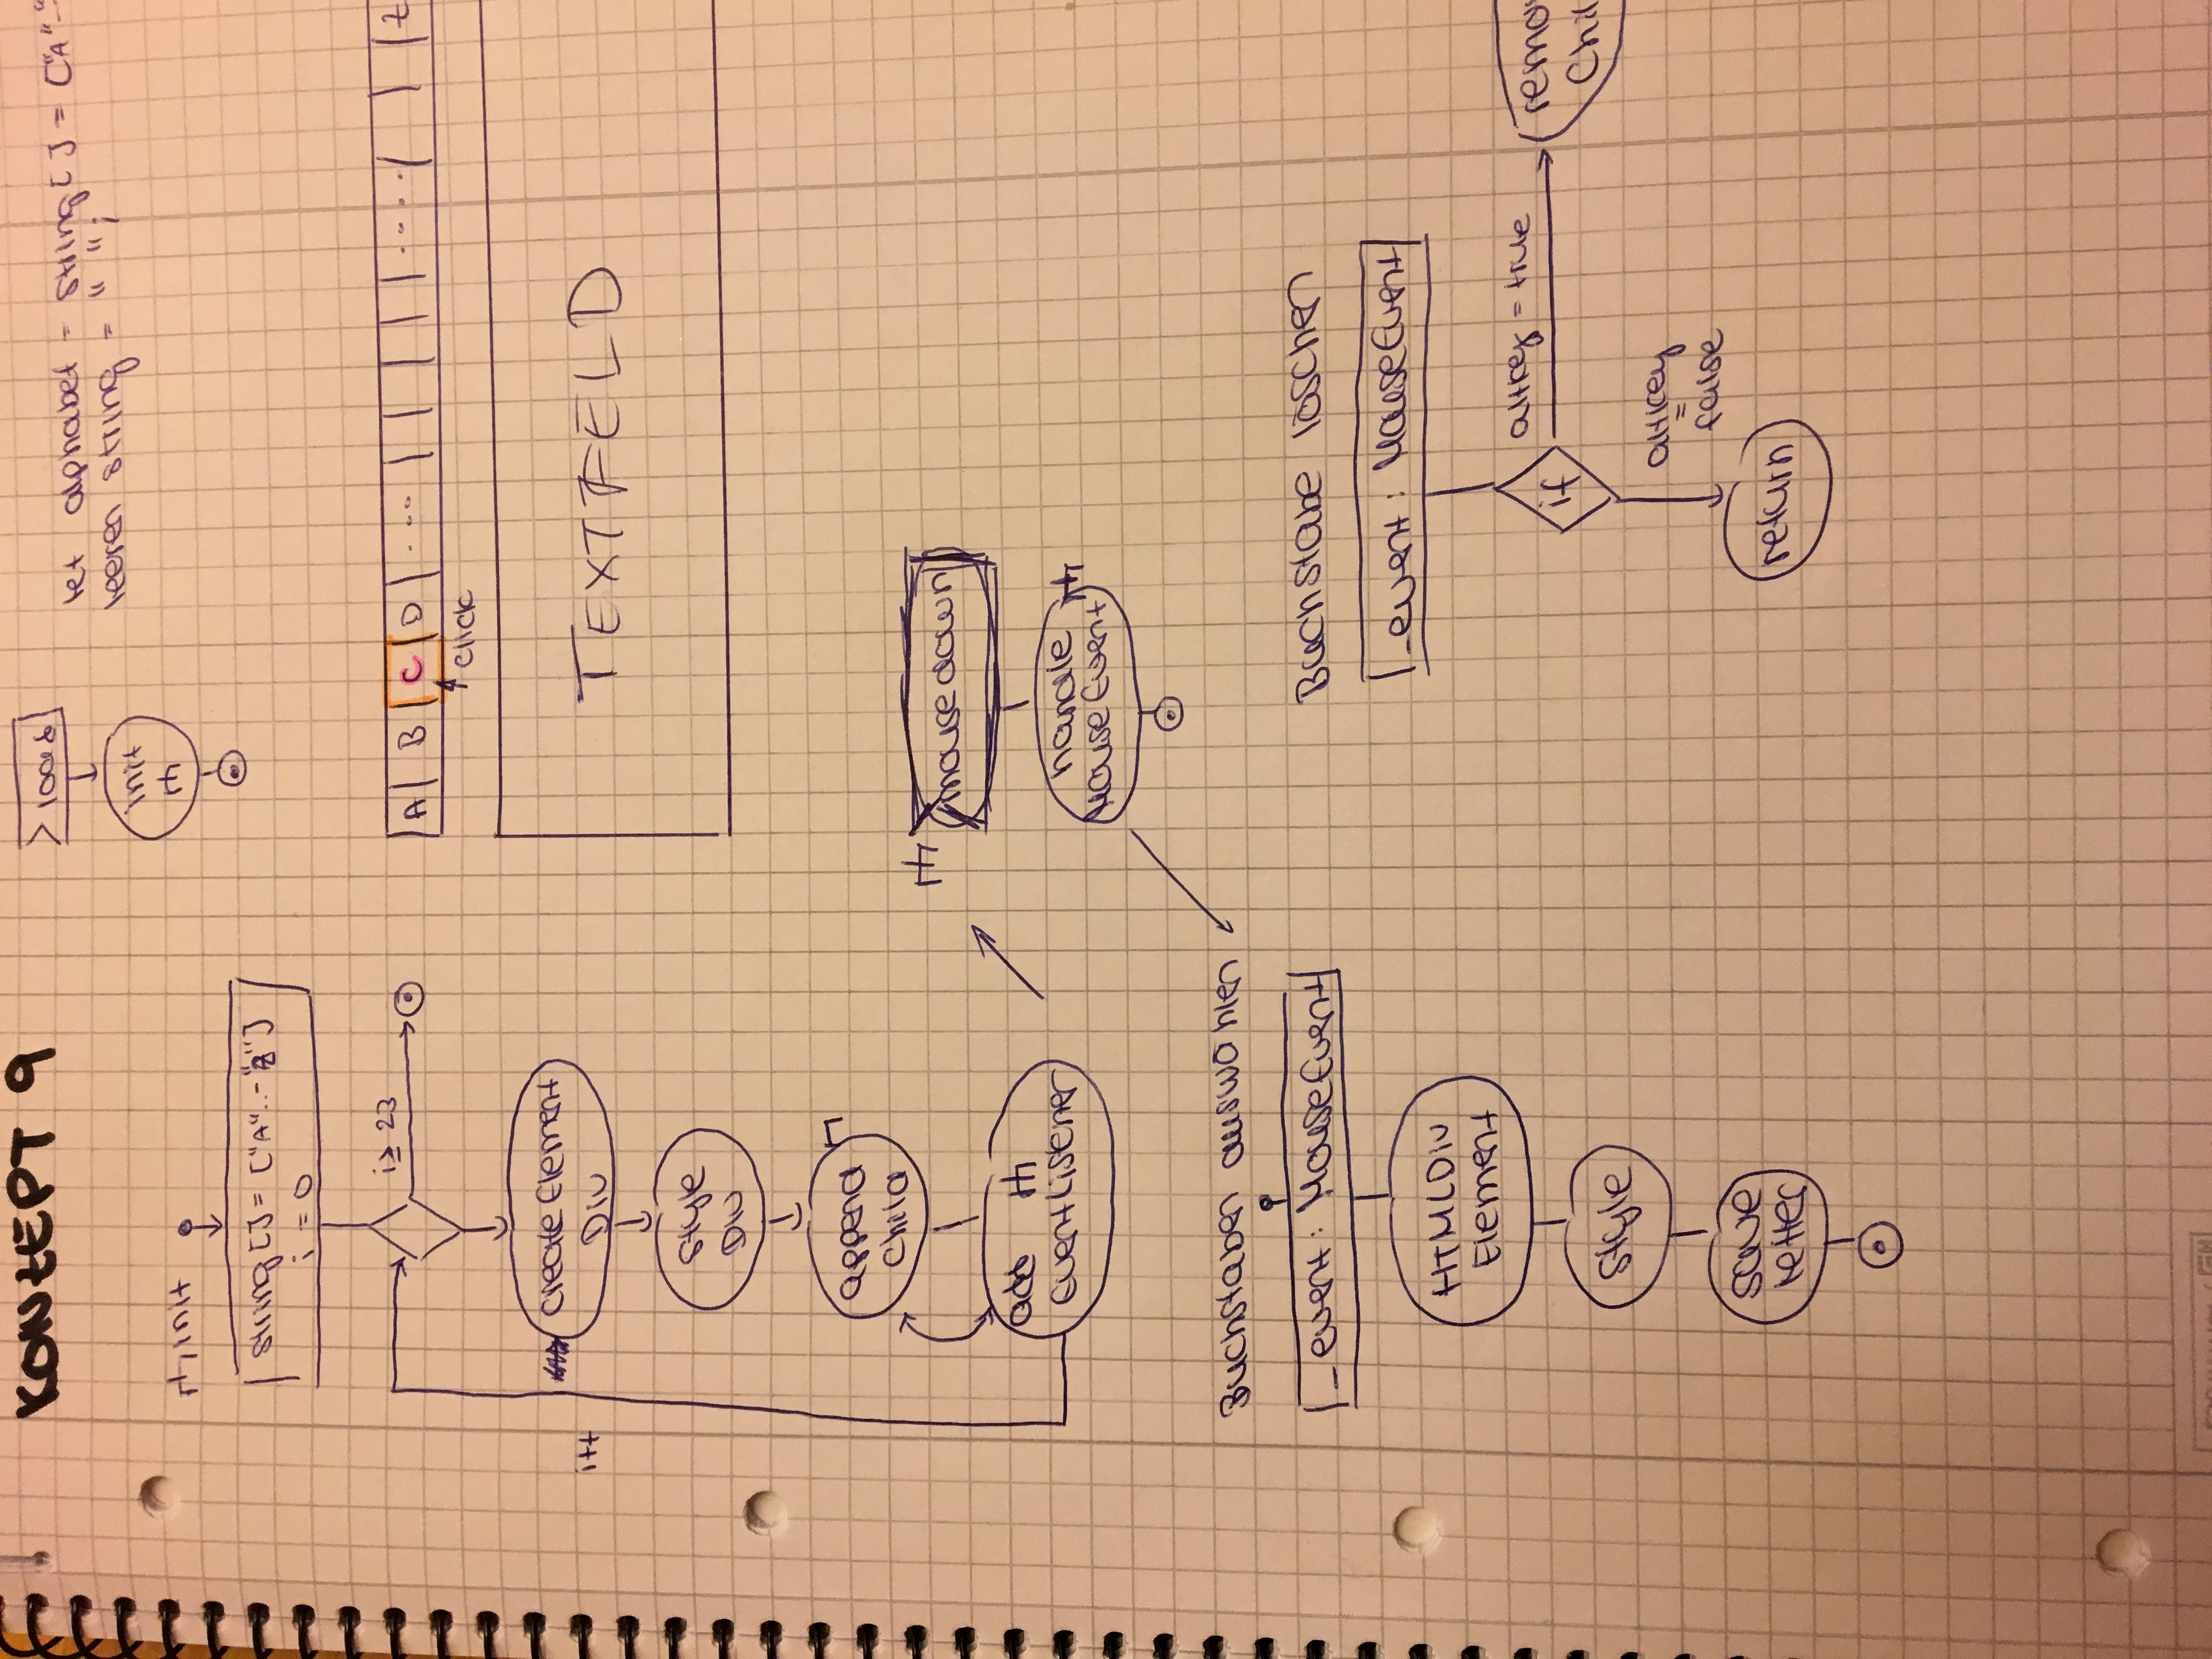 KONZEPT 9
load
let alphabet = string[] = ["A"..
leeren string = " ";
init
init
string[] = ["A"..-"Z"]
i = 0
i ≥ 23
A B C D ... .... Z
click
TEXTFELD
i++
create Element
Div
style
Div
append
Child
add
EventListener
mouse down
handle
MouseEvent
Buchstaben auswählen
_event: MouseEvent
HTMLDiv
Element
style
save
letter
Buchstabe löschen
_event: MouseEvent
if
altkey = true
remo
Chil
altkey
=
false
return